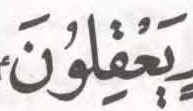 يَعْقِلُوْنَ